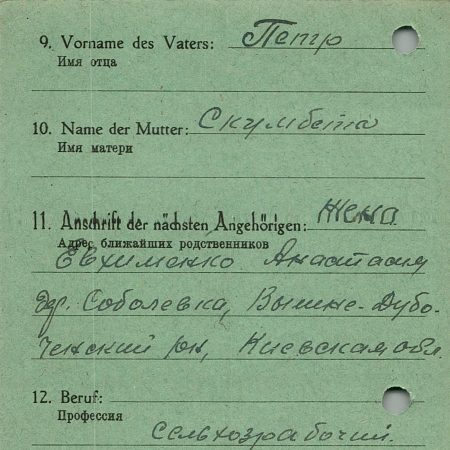 9. Vorname des Vaters: Петр
Имя отца
10. Name der Mutter: Скумбета
Имя матери
11. Anschrift der nächsten Angehörigen: Жена
Адрес ближайших родственников
Евхименко Анастасия
др. Соболевка, Вышне-Дубо-
ченский рн, Киевская обл.
12. Beruf:
Профессия
Сельхозрабочий.